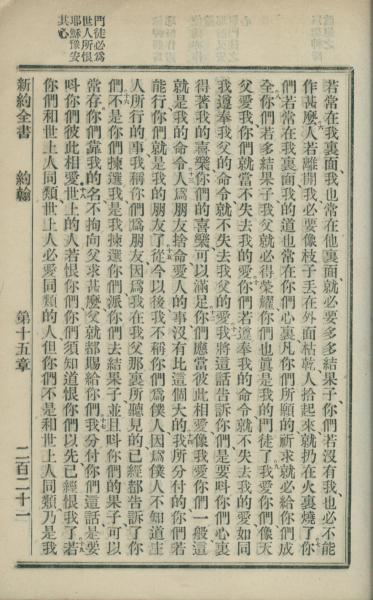 若常在我裏面我也常在他裏面就必要多多結果子你們若沒有我也必不能
作甚麼人若離開我必要像枝子丟在外面枯乾人拾起來就扔在火裏燒了你
們若常在我裏面我的道也常在你們心裏凡你們所願的祈求就必給你們成
全你們若多結果子我父就必得榮耀你們也眞是我的門徒了我愛你們像天
父愛我你們就當不失去我的愛你們若遵奉我的命令就不失去我的愛如同
我遵奉我父的命令就不失去我父的愛我將這話告訴你們是要呌你們心裏
得著我的喜樂你們的喜樂可以滿足你們應當彼此相愛像我愛你們一般這
就是我的命令人爲朋友捨命愛人的事沒有比這個大的我所分付的你們若
能行你們就是我的朋友了從今以後我不稱你們爲僕人因爲僕人不知道主
人所行的事我稱你們爲朋友因爲我在我父那裏所聽見的已經都告訴了你
們不是你們揀選我是我揀選你們派你們去結果子並且呌你們的果子可以
常存你們靠我的名不拘向父求甚麼父就都賜給你們我分付你們這話是要
呌你們彼此相愛世上的人若恨你們你們須知道恨你們以先已經恨我了若
你們和世上人同類世上人必愛同類的人但你們不是和世上人同類乃是我
門徒必爲
世人所恨
耶穌豫安
其心
新約全書
約翰
第十五章
二百二十二